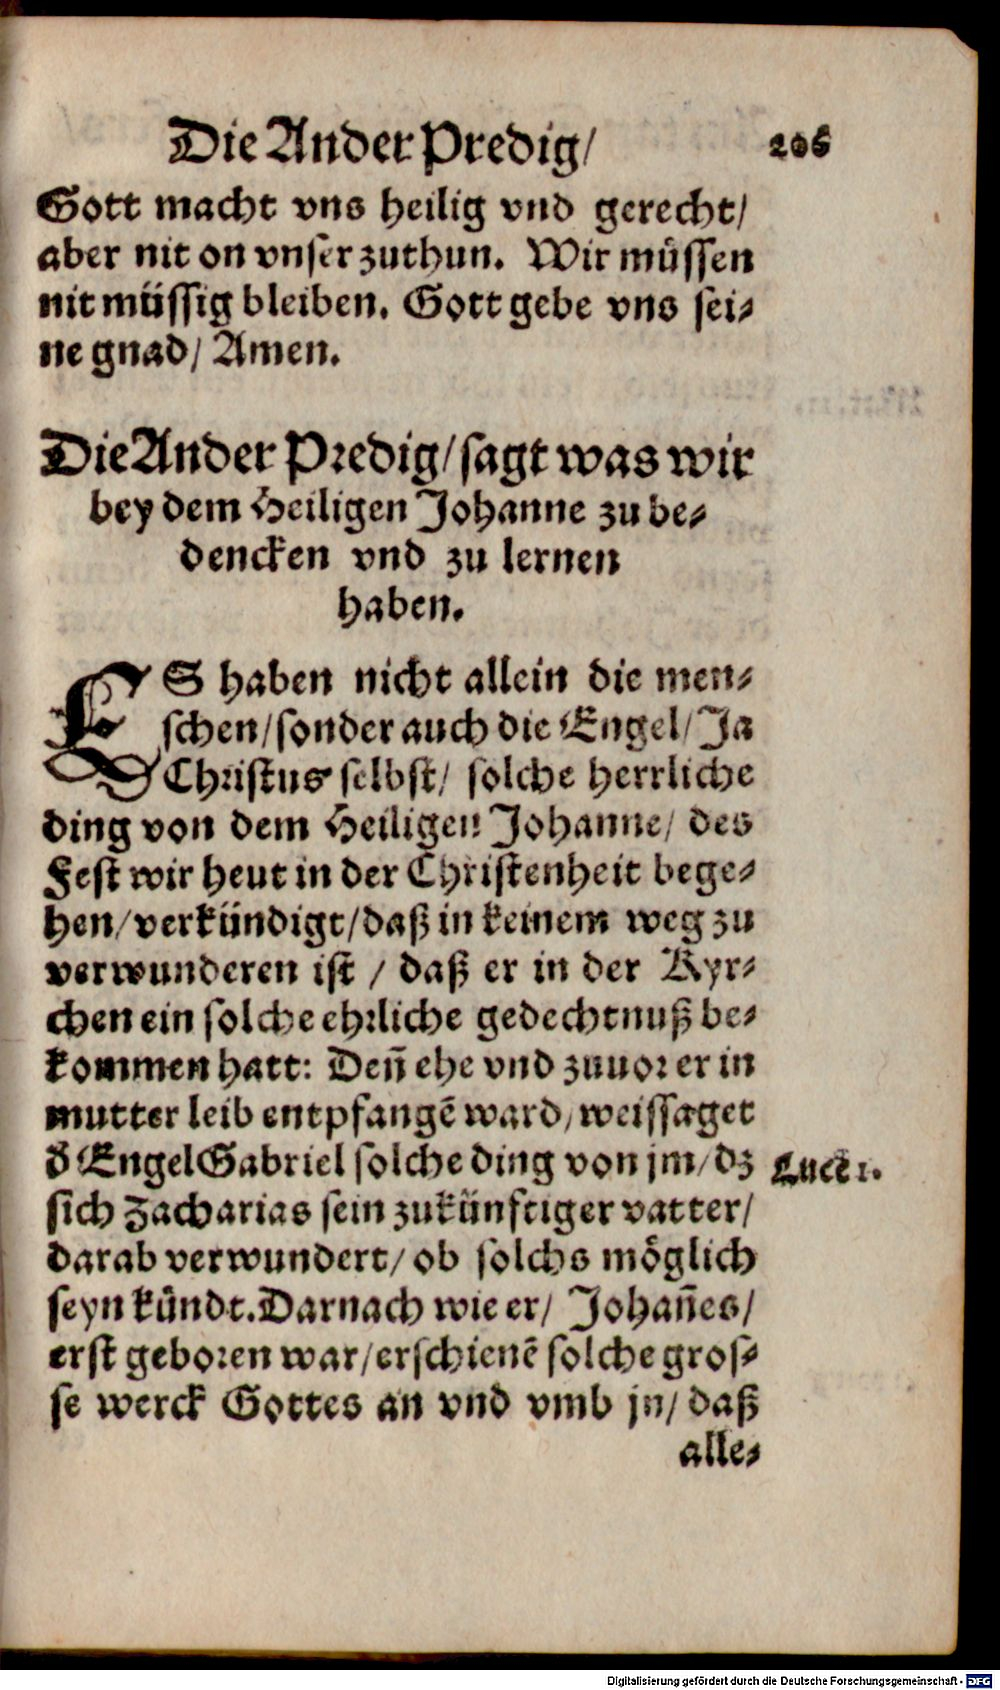 Die Ander Predig/ 206
Gott macht vns heilig vnd gerecht/
aber nit on vnser zuthun. Wir müssen
nit müssig bleiben. Gott gebe vns sei⸗
ne gnad/ Amen.
Die Ander Predig/ sagt was wir
bey dem Heiligen Johanne zu be⸗
dencken vnd zu lernen
haben.
ES haben nicht allein die men⸗
schen/ sonder auch die Engel/ Ja
Christus selbst/ solche herrliche
ding von dem Heiligen Johanne/ des
Fest wir heut in der Christenheit bege⸗
hen/ verkündigt/ daß in keinem weg zu
verwunderen ist / daß er in der Kyr⸗
chen ein solche ehrliche gedechtnuß be⸗
kommen hatt: Den̄ ehe vnd zuuor er in
mutter leib entpfangē ward/ weissaget
d̄ Engel Gabriel solche ding von jm/ dz
Luce 1.
sich Zacharias sein zukünftiger vatter/
darab verwundert/ ob solchs möglich
seyn kündt. Darnach wie er/ Johan̄es/
erst geboren war/ erschienē solche gros⸗
se werck Gottes an vnd vmb jn/ daß
alle⸗
Digitalisierung gefördert durch die Deutsche Forschungsgemeinschaft - DFG